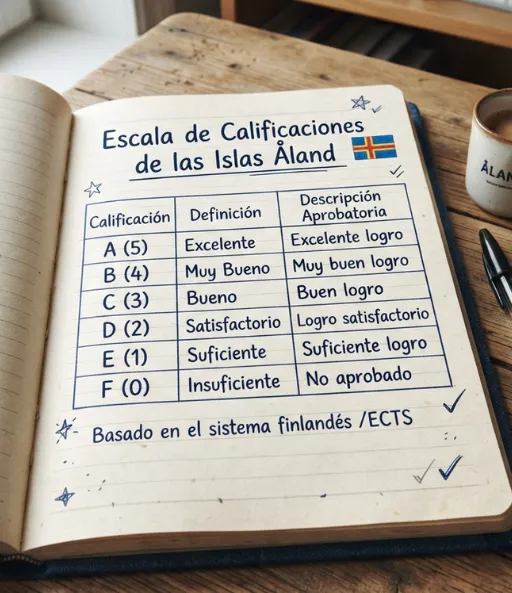 Escala de Calificaciones
de las Islas Åland
Calificación Definición Descripción Aprobatoria
A (5) Excelente Excelente logro
B (4) Muy Bueno Muy buen logro
C (3) Bueno Buen logro
D (2) Satisfactorio Logro satisfactorio
E (1) Suficiente Suficiente logro
F (0) Insuficiente No aprobado
Basado en el sistema finlandés /ECTS